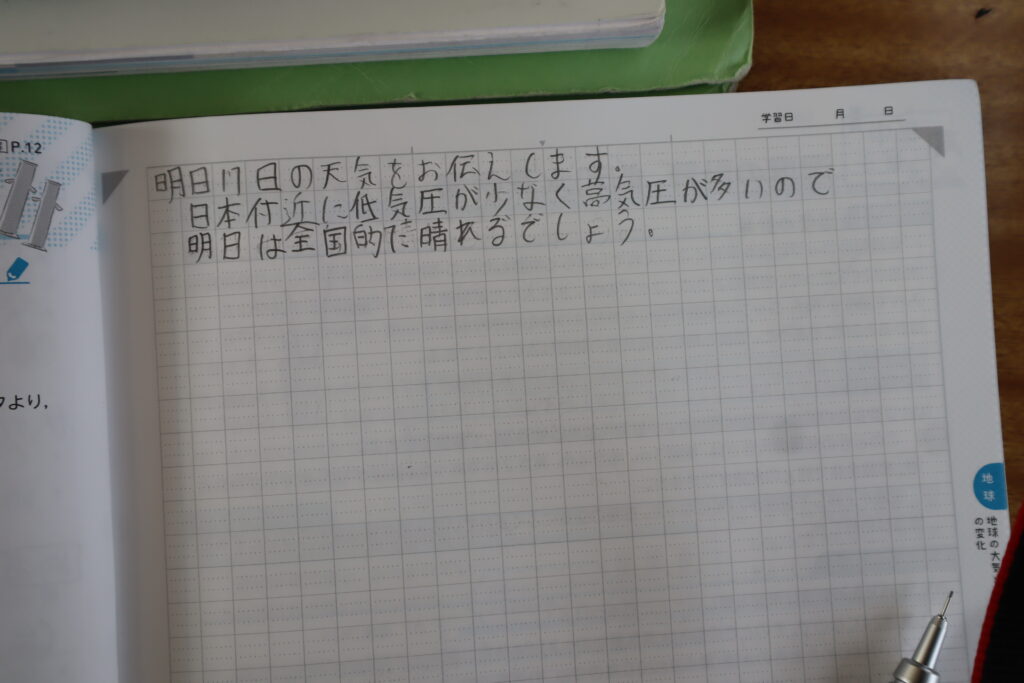 P.12
より,
学習日 月 日
明日17日の天気をお伝えします。
日本付近に低気圧が少なく高気圧が多いので
明日は全国的に晴れるでしょう。
地球
地球の大気
の変化